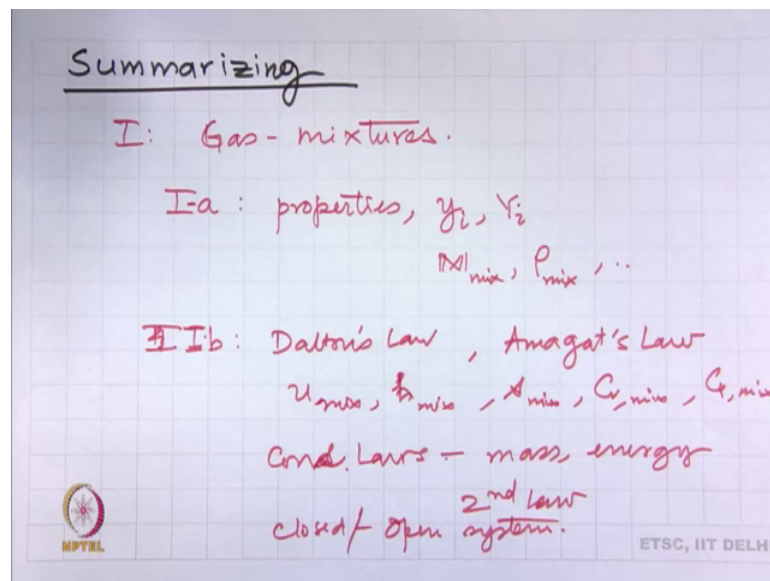 Summarizing
I: Gas-mixtures.
I-a: properties, yi, Yi
Mmix, ρmix, ..
Ib: Dalton's Law, Amagat's Law
umix, hmix, smix, Cv,mix, Cp,mix
Cond. Laws - mass, energy
2nd Law
closed/open system.
NPTEL
ETSC, IIT DELHI